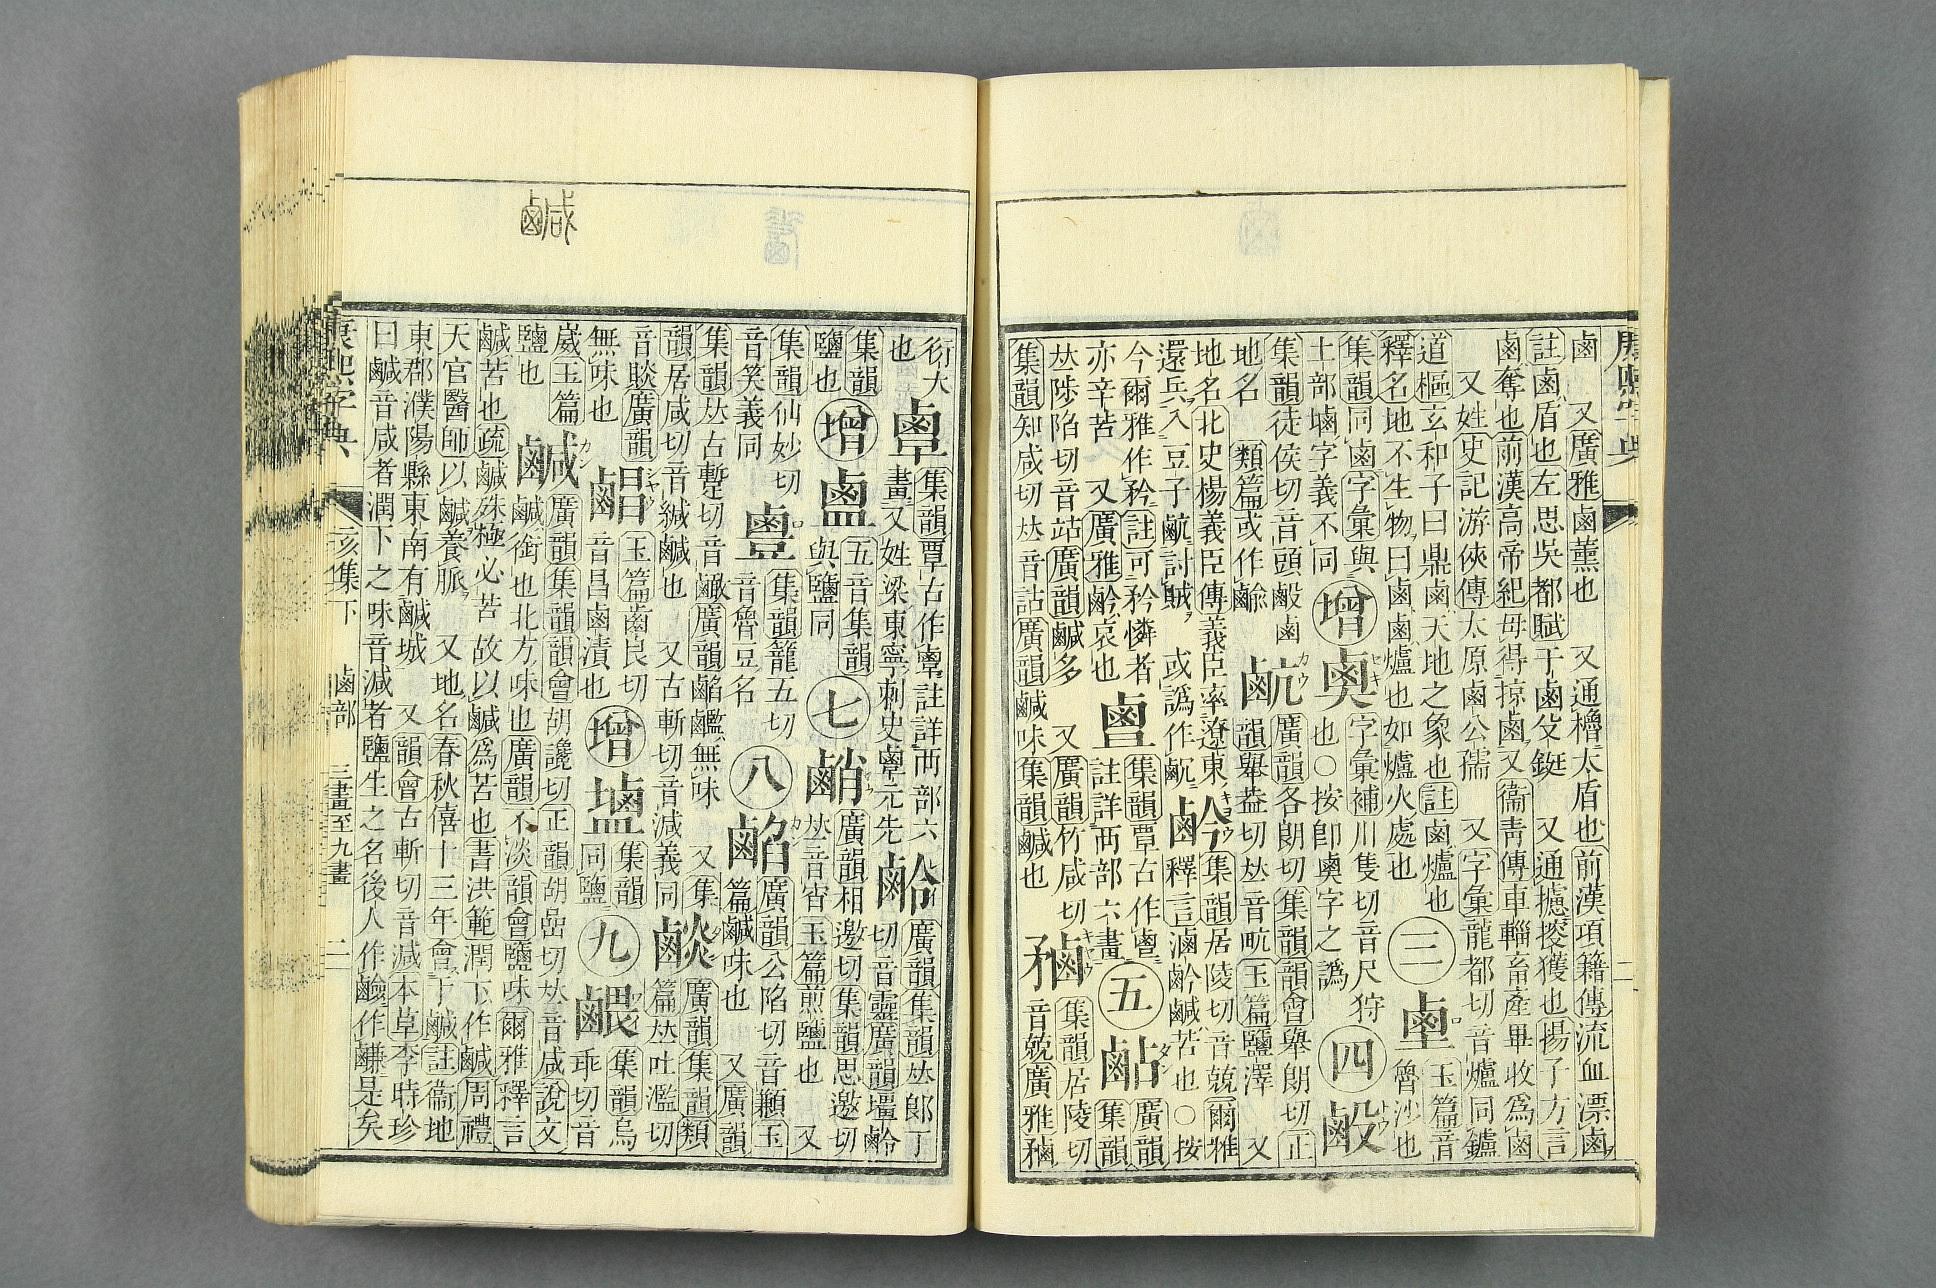 鹵　又廣雅鹵薰也　又通櫓大盾也前漢項籍傳流血漂鹵
註鹵盾也左思吳都賦干鹵殳鋋　又通攎揬獲也揚子方言
鹵奪也前漢高帝紀毋得掠鹵又衞靑傳車輜畜產畢收爲鹵
又姓史記游俠傳太原鹵公孺　又字彙龍都切音爐同鑪
道樞玄和子曰鼎鹵天地之象也註鹵爐也　三　玉篇音
釋名地不生物曰鹵鹵爐也如爐火處也　魯沙也
集韻同鹵字彙與　增　字彙補川隻切音尺狩　四
土部塷字義不同　也○按卽字之譌
集韻徒侯切音頭鹵　䴚　廣韻各朗切集韻韻會舉朗切正
地名　類篇或作　韻舉盎切𠀤音㽘玉篇鹽澤　又
地名北史楊義臣傳義臣率遼東　䴛　集韻居陵切音兢爾雅
還兵入豆子䴚討賊或譌作　釋言滷䴛鹹苦也○按
今爾雅作矜註可矜憐者　集韻覃古作　五　廣韻
亦辛苦　又廣雅䴛哀也　註詳襾部六畫　集韻
𠀤陟陷切音站廣韻鹹多　又廣韻竹咸切　集韻居陵切
集韻知咸切𠀤音詀廣韻鹹味集韻鹹也　音兢廣雅
鹹
衍大　集韻覃古作註詳襾部六　廣韻集韻𠀤郞丁
也　畫又姓梁東寧刺史元先　切音靈廣韻
集韻　增　五音集韻　七　廣韻相邀切集韻思邀切
鹽也　與鹽同　𠀤音宵玉篇煎鹽也　又
集韻仙妙切　集韻籠五切　八　䱤　廣韻公陷切音顑玉
音笑義同　音魯豆名　篇鹹味也　又廣韻
集韻𠀤古蹔切音　廣韻無味　又集　廣韻集韻類
韻居咸切音緘鹹也　又古斬切音減義同　篇𠀤吐濫切
音賧廣韻　玉篇齒良切　增　集韻　九　集韻烏
無味也　音昌鹵漬也　同鹽　乖切音
崴玉篇　鹹　廣韻集韻韻會胡讒切正韻胡嵒切𠀤音咸說文
鹽也　鹹銜也北方味也廣韻不淡韻會鹽味爾雅釋言
鹹苦也疏鹹殊極必苦故以鹹爲苦也書洪範潤下作鹹周禮
天官醫師以鹹養脈　又地名春秋僖十三年會于鹹註衞地
東郡濮陽縣東南有鹹城　又韻會古斬切音減本草李時珍
曰鹹音咸者潤下之味音減者鹽生之名後人作鹼作鹻是矣
康熙字典　亥集下　鹵部　三畫至九畫　二